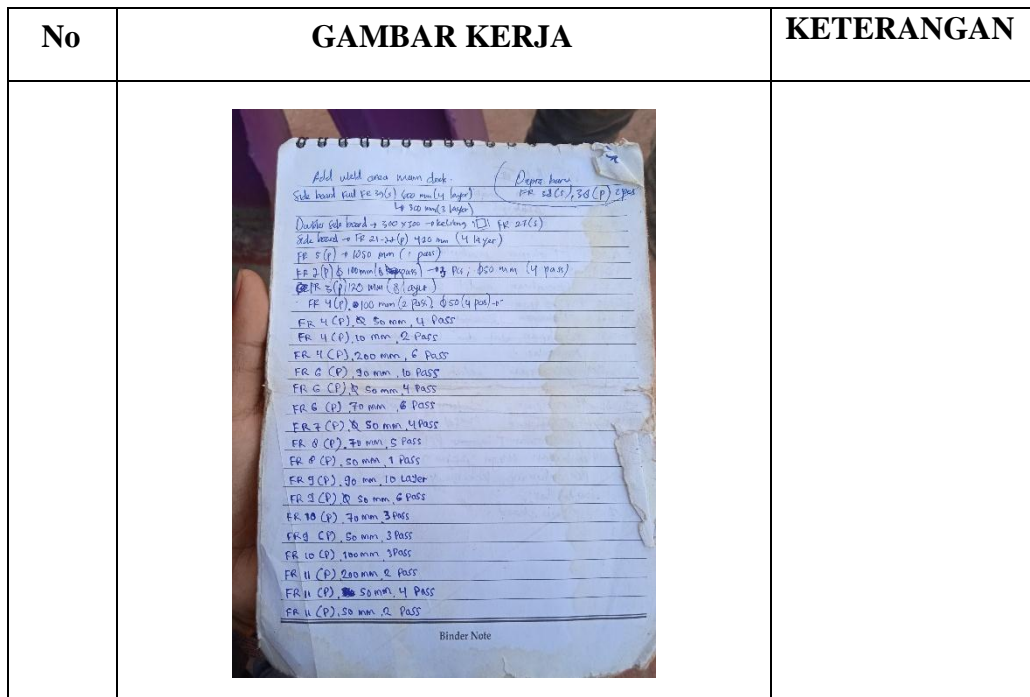 No
GAMBAR KERJA
KETERANGAN
Add weld area main deck.
Side board Full FR 39(s) 600 mm (4 layer)
↳ 300 mm (3 layer)
FR 38 (s), 38 (P) 2 pas
Doubler Side board → 300 x 300 → keliling □ FR 27(s)
Side board → FR 21-22 (p) 420 mm (4 layer)
FR 5 (p) → 1050 mm (1 pass)
FR 2 (P) ϕ 100 mm (8 pass) → 3 Pcs, ϕ50 mm (4 pass)
FR 3 (p) 120 mm (8 layer)
FR 4 (P) 100 mm (2 pass), ϕ50 (4 pas)
FR 4 (P), ϕ 50 mm, 4 Pass
FR 4 (P), 10 mm, 2 Pass
FR 4 (P), 200 mm, 6 Pass
FR 6 (P), 90 mm, 10 Pass
FR 6 (P), ϕ 50 mm, 4 Pass
FR 6 (P), 70 mm, 6 Pass
FR 7 (P), ϕ 50 mm, 4 Pass
FR 8 (P), 70 mm, 5 Pass
FR 8 (P), 50 mm, 1 Pass
FR 9 (P), 90 mm, 10 Layer
FR 9 (P), ϕ 50 mm, 6 Pass
FR 10 (P), 70 mm, 3 Pass
FR 9 (P), 50 mm, 3 Pass
FR 10 (P), 100 mm, 3 Pass
FR 11 (P), 200 mm, 2 Pass
FR 11 (P), 50 mm, 4 Pass
FR 11 (P), 50 mm, 2 Pass
Binder Note